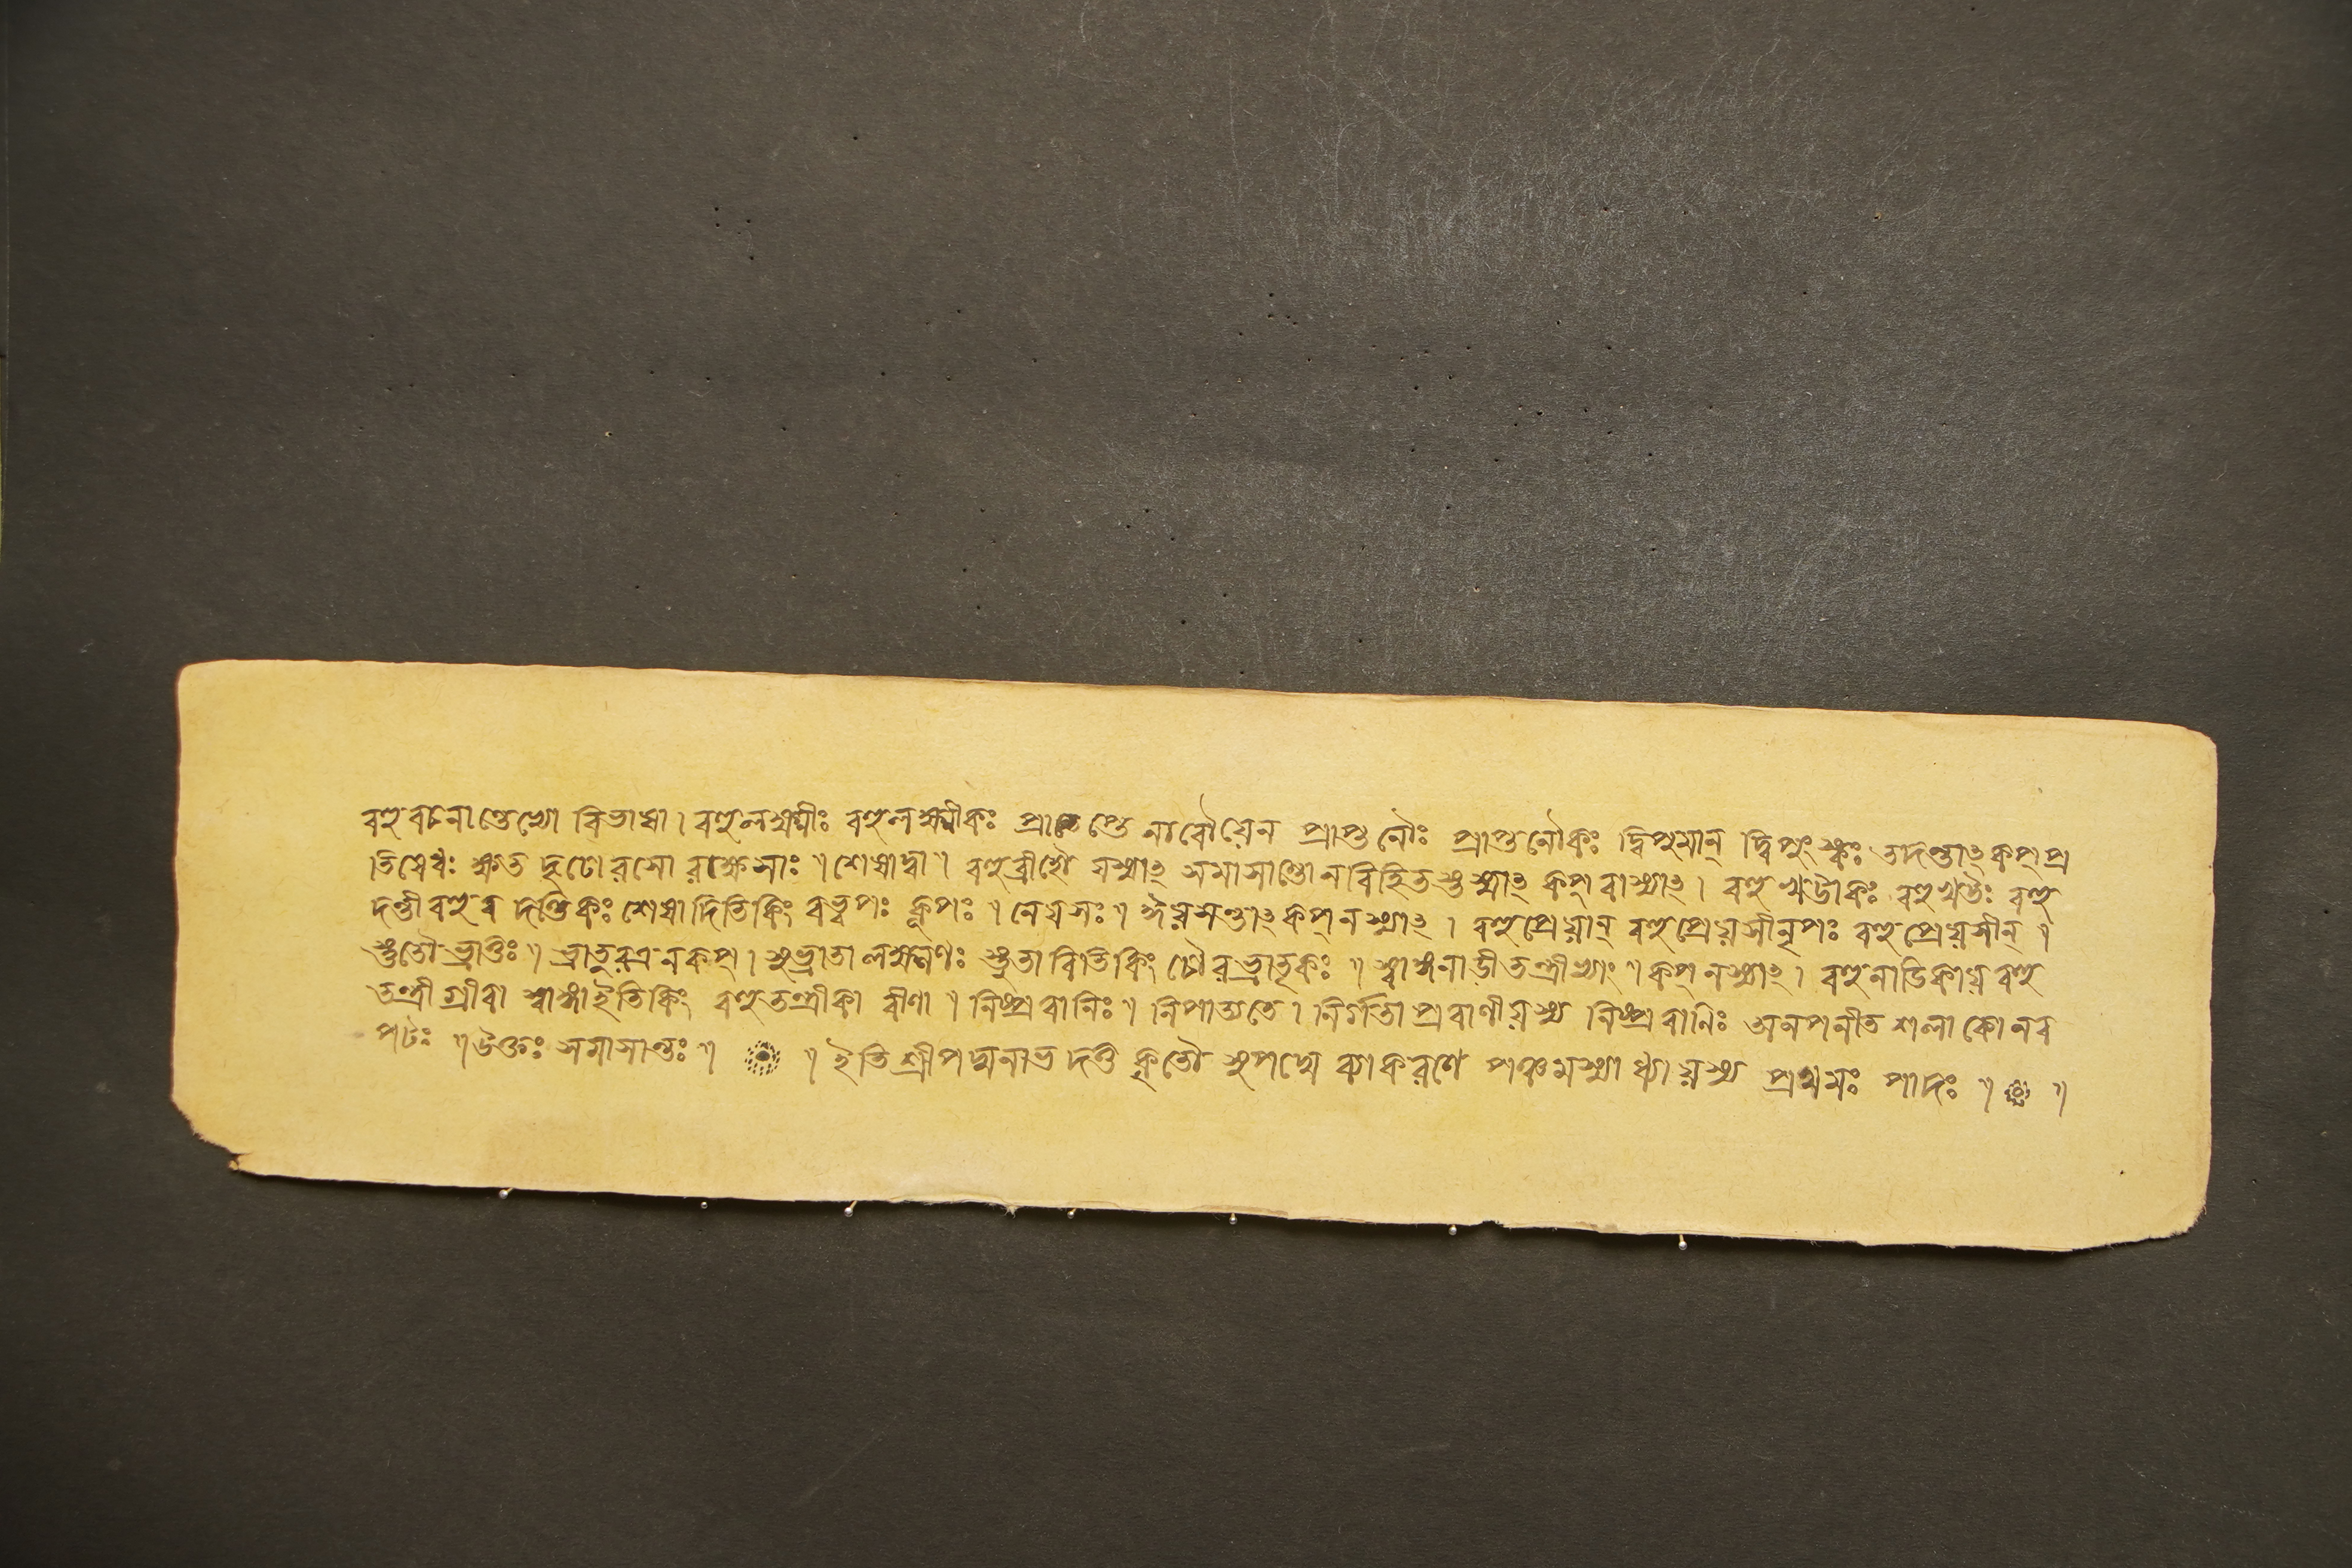 বহুবচনান্তেভ্যো বিভাষা। বহুলক্ষ্মীঃ বহুলক্ষ্মীকঃ প্রাপ্তে নাবৌযেন প্রাপ্তনৌঃ প্রাপ্তনৌকঃ দ্বিপুমান্ দ্বিপুংস্কঃ তদন্তাৎ কপ্ প্র
তিষেধঃ ক্ষত দৃঢোরসো রাক্ষসাঃ॥ শেষাদ্বা॥ বহুব্রীহৌ যস্মাৎ সমাসান্তো ন বিহিতস্তস্মাৎ কপ্ বাস্যাৎ। বহুখট্বাকঃ বহুখট্বঃ বহু
দণ্ডী বহুব দণ্ডিকঃ শেষাদিতি কিং বহ্বপঃ কূপঃ॥ নেয়সঃ॥ ঈয়সন্তাৎ কপ্ ন স্যাৎ। বহুপ্রেয়ান্ বহুপ্রেয়সী নৃপঃ বহুপ্রেয়সীন্॥
স্তুতৌ ভ্রাতুঃ॥ ভ্রাতুরত্র ন কপ্। সুভ্রাতা লক্ষ্মণঃ স্তুতাবিতি কিং চৌরভ্রাতৃকঃ॥ স্বাঙ্গনাডীতন্ত্রীভ্যাং॥ কপ্ ন স্যাৎ। বহুনাডিকায় বহু
তন্ত্রী গ্রীবা স্বাঙ্গাইতি কিং বহুতন্ত্রীকা বীণা॥ নিষ্প্রবানিঃ॥ নিপাত্যতে। নির্গতা প্রবাণীয়স্য নিষ্প্রবানিঃ অনপনীত শলাকো নব
পটঃ॥ উক্তঃ সমাসান্তঃ॥ ॥ ইতি শ্রীপদ্মনাভ দত্ত কৃতৌ সুপদ্মে ব্যাকরণে পঞ্চমস্যাধ্যায়স্য প্রথমঃ পাদঃ॥ ॥